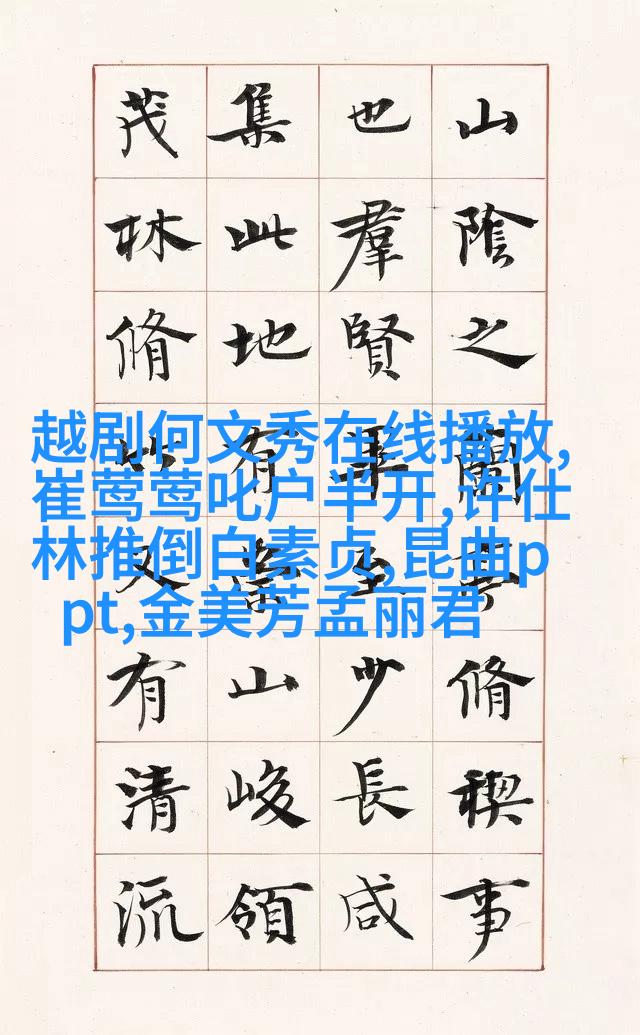 山陰之蘭亭脩稧事
也羣賢畢至少長咸
集此地有崇山峻領
茂林脩竹又有清流
越剧何文秀在线播放,
崔莺莺叱户半开,许仕
林推倒白素贞,昆曲p
pt,金美芳孟丽君